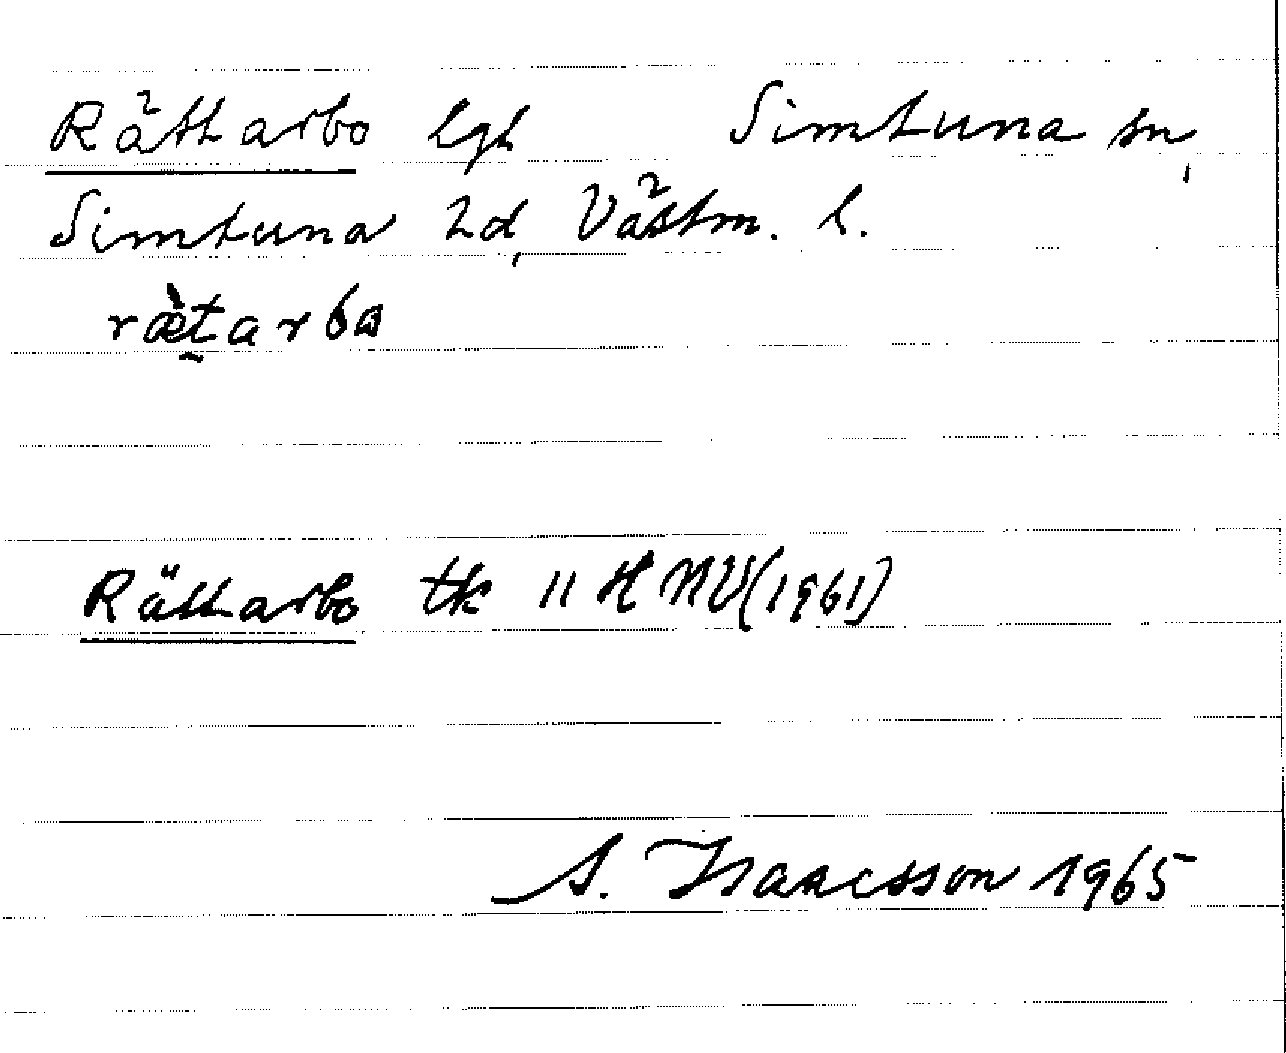 Rättarbo lgh Simtuna sn,
Simtuna hd, Västm. l.
ræ̀tarba
Rättarbo tk 11 H NV (1961)
S. Isaacsson 1965